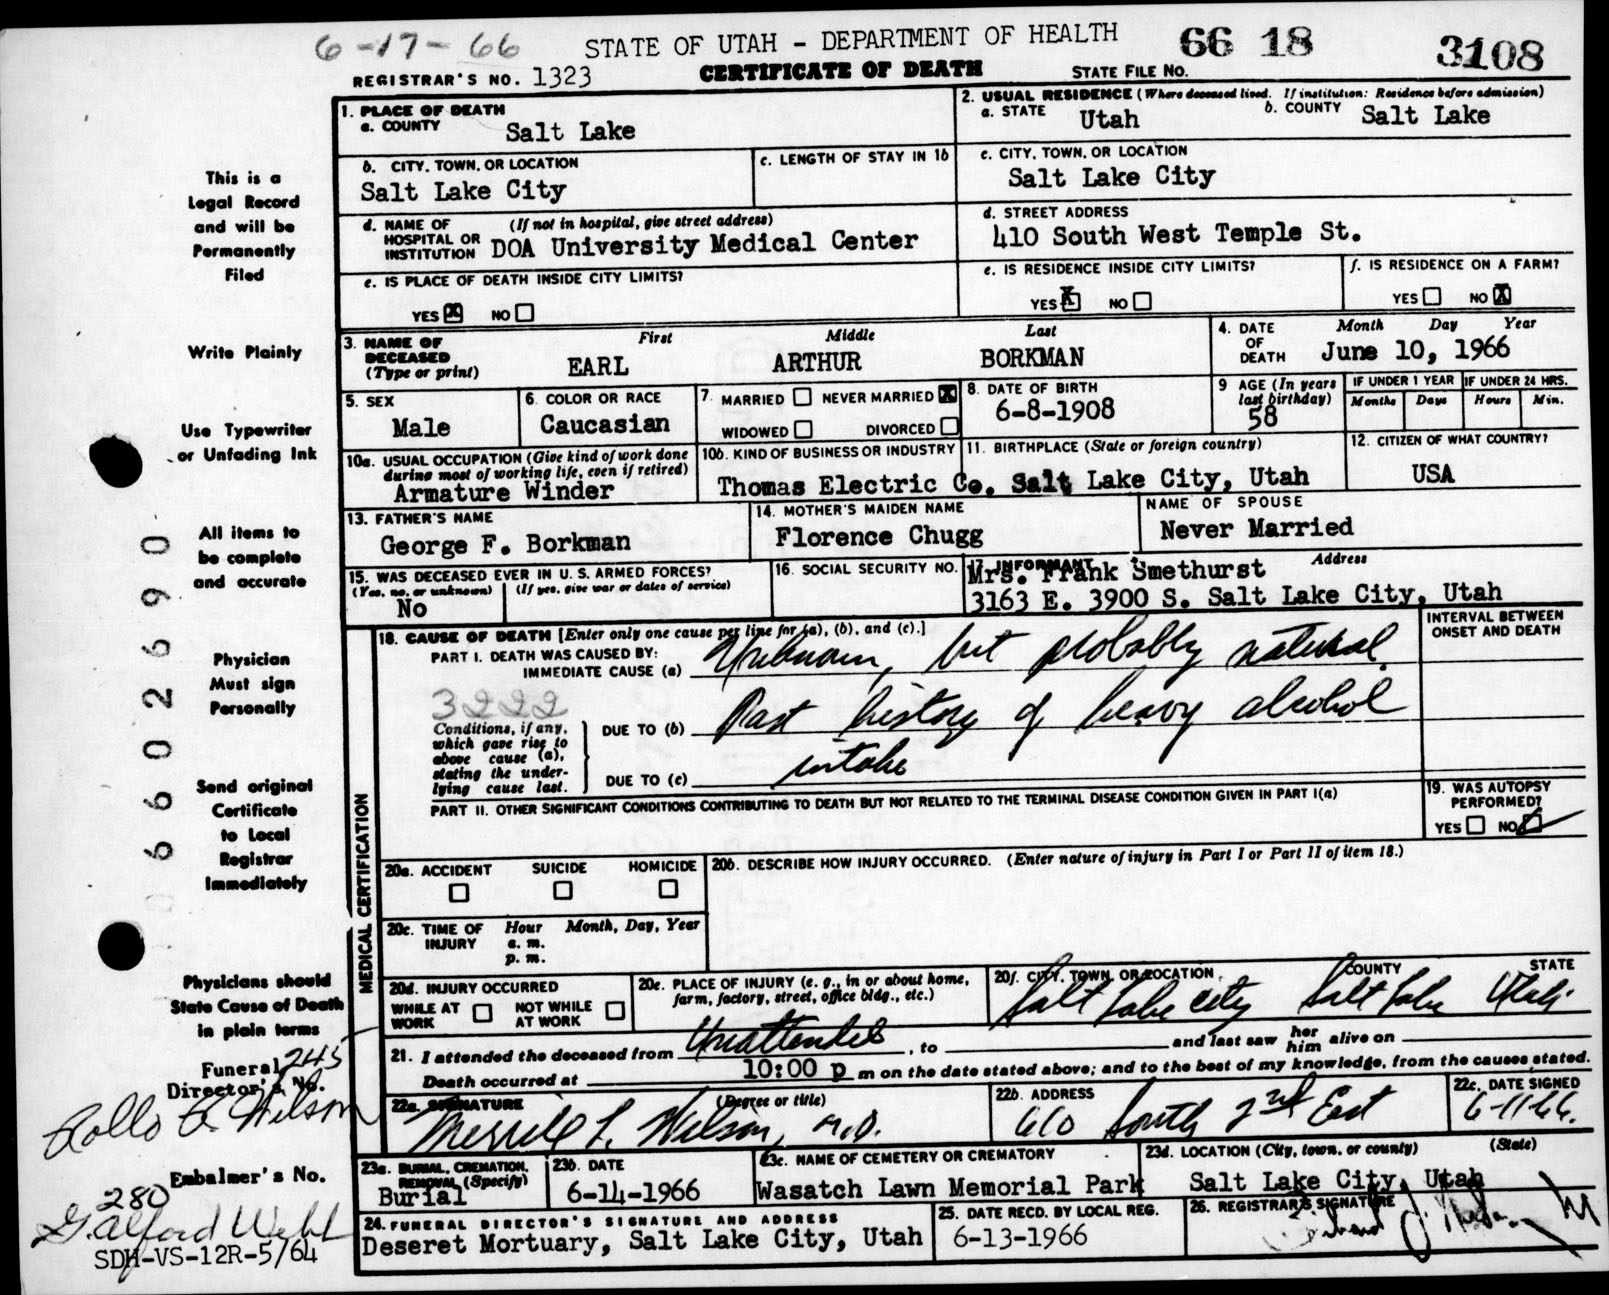 6-17-66
STATE OF UTAH - DEPARTMENT OF HEALTH
66 18 3108
REGISTRAR'S NO. 1323
CERTIFICATE OF DEATH
STATE FILE NO.
1. PLACE OF DEATH
a. COUNTY Salt Lake
2. USUAL RESIDENCE (Where deceased lived. If institution: Residence before admission)
a. STATE Utah b. COUNTY Salt Lake
b. CITY, TOWN, OR LOCATION
Salt Lake City
c. LENGTH OF STAY IN 1b
c. CITY, TOWN, OR LOCATION
Salt Lake City
d. NAME OF HOSPITAL OR INSTITUTION (If not in hospital, give street address)
DOA University Medical Center
d. STREET ADDRESS
410 South West Temple St.
e. IS PLACE OF DEATH INSIDE CITY LIMITS?
YES X NO
e. IS RESIDENCE INSIDE CITY LIMITS?
YES X NO
f. IS RESIDENCE ON A FARM?
YES NO X
3. NAME OF DECEASED (Type or print)
First Middle Last
EARL ARTHUR BORKMAN
4. DATE OF DEATH Month Day Year
June 10, 1966
5. SEX
Male
6. COLOR OR RACE
Caucasian
7. MARRIED NEVER MARRIED X
WIDOWED DIVORCED
8. DATE OF BIRTH
6-8-1908
9 AGE (In years last birthday)
58
IF UNDER 1 YEAR Months Days
IF UNDER 24 HRS. Hours Min.
10a. USUAL OCCUPATION (Give kind of work done during most of working life, even if retired)
Armature Winder
10b. KIND OF BUSINESS OR INDUSTRY
Thomas Electric Co.
11. BIRTHPLACE (State or foreign country)
Salt Lake City, Utah
12. CITIZEN OF WHAT COUNTRY?
USA
13. FATHER'S NAME
George F. Borkman
14. MOTHER'S MAIDEN NAME
Florence Chugg
NAME OF SPOUSE
Never Married
15. WAS DECEASED EVER IN U. S. ARMED FORCES?
(Yes, no, or unknown) (If yes, give war or dates of service)
No
16. SOCIAL SECURITY NO.
17. INFORMANT Address
Mrs. Frank Smethurst
3163 E. 3900 S. Salt Lake City, Utah
MEDICAL CERTIFICATION
18. CAUSE OF DEATH [Enter only one cause per line for (a), (b), and (c).]
INTERVAL BETWEEN ONSET AND DEATH
PART I. DEATH WAS CAUSED BY:
IMMEDIATE CAUSE (a) Unknown, but probably natural.
3222
Conditions, if any, which gave rise to above cause (a), stating the underlying cause last.
DUE TO (b) Past history of heavy alcohol
DUE TO (c) intake
PART II. OTHER SIGNIFICANT CONDITIONS CONTRIBUTING TO DEATH BUT NOT RELATED TO THE TERMINAL DISEASE CONDITION GIVEN IN PART I(a)
19. WAS AUTOPSY PERFORMED?
YES NO
20a. ACCIDENT SUICIDE HOMICIDE
20b. DESCRIBE HOW INJURY OCCURRED. (Enter nature of injury in Part I or Part II of item 18.)
20c. TIME OF INJURY Hour Month, Day, Year
a. m.
p. m.
20d. INJURY OCCURRED
WHILE AT WORK NOT WHILE AT WORK
20e. PLACE OF INJURY (e. g., in or about home, farm, factory, street, office bldg., etc.)
20f. CITY, TOWN, OR LOCATION COUNTY STATE
Salt Lake City Salt Lake Utah
21. I attended the deceased from Unattended, to and last saw her him alive on
Death occurred at 10:00 p m on the date stated above; and to the best of my knowledge, from the causes stated.
22a. SIGNATURE (Degree or title)
Merrill L. Wilson, M.D.
22b. ADDRESS
610 South 2nd East
22c. DATE SIGNED
6-11-66.
23a. BURIAL, CREMATION, REMOVAL (Specify)
Burial
23b. DATE
6-14-1966
23c. NAME OF CEMETERY OR CREMATORY
Wasatch Lawn Memorial Park
23d. LOCATION (City, town, or county) (State)
Salt Lake City, Utah
24. FUNERAL DIRECTOR'S SIGNATURE AND ADDRESS
Deseret Mortuary, Salt Lake City, Utah
25. DATE RECD. BY LOCAL REG.
6-13-1966
26. REGISTRAR'S SIGNATURE
This is a
Legal Record
and will be
Permanently
Filed
Write Plainly
Use Typewriter
or Unfading Ink
All items to
be complete
and accurate
Physician
Must sign
Personally
Send original
Certificate
to Local
Registrar
Immediately
Physicians should
State Cause of Death
in plain terms
Funeral 245
Director's No.
Rollo Wilson
Embalmer's No.
280
G. Alford Webb
SDH-VS-12R-5/64
6602690